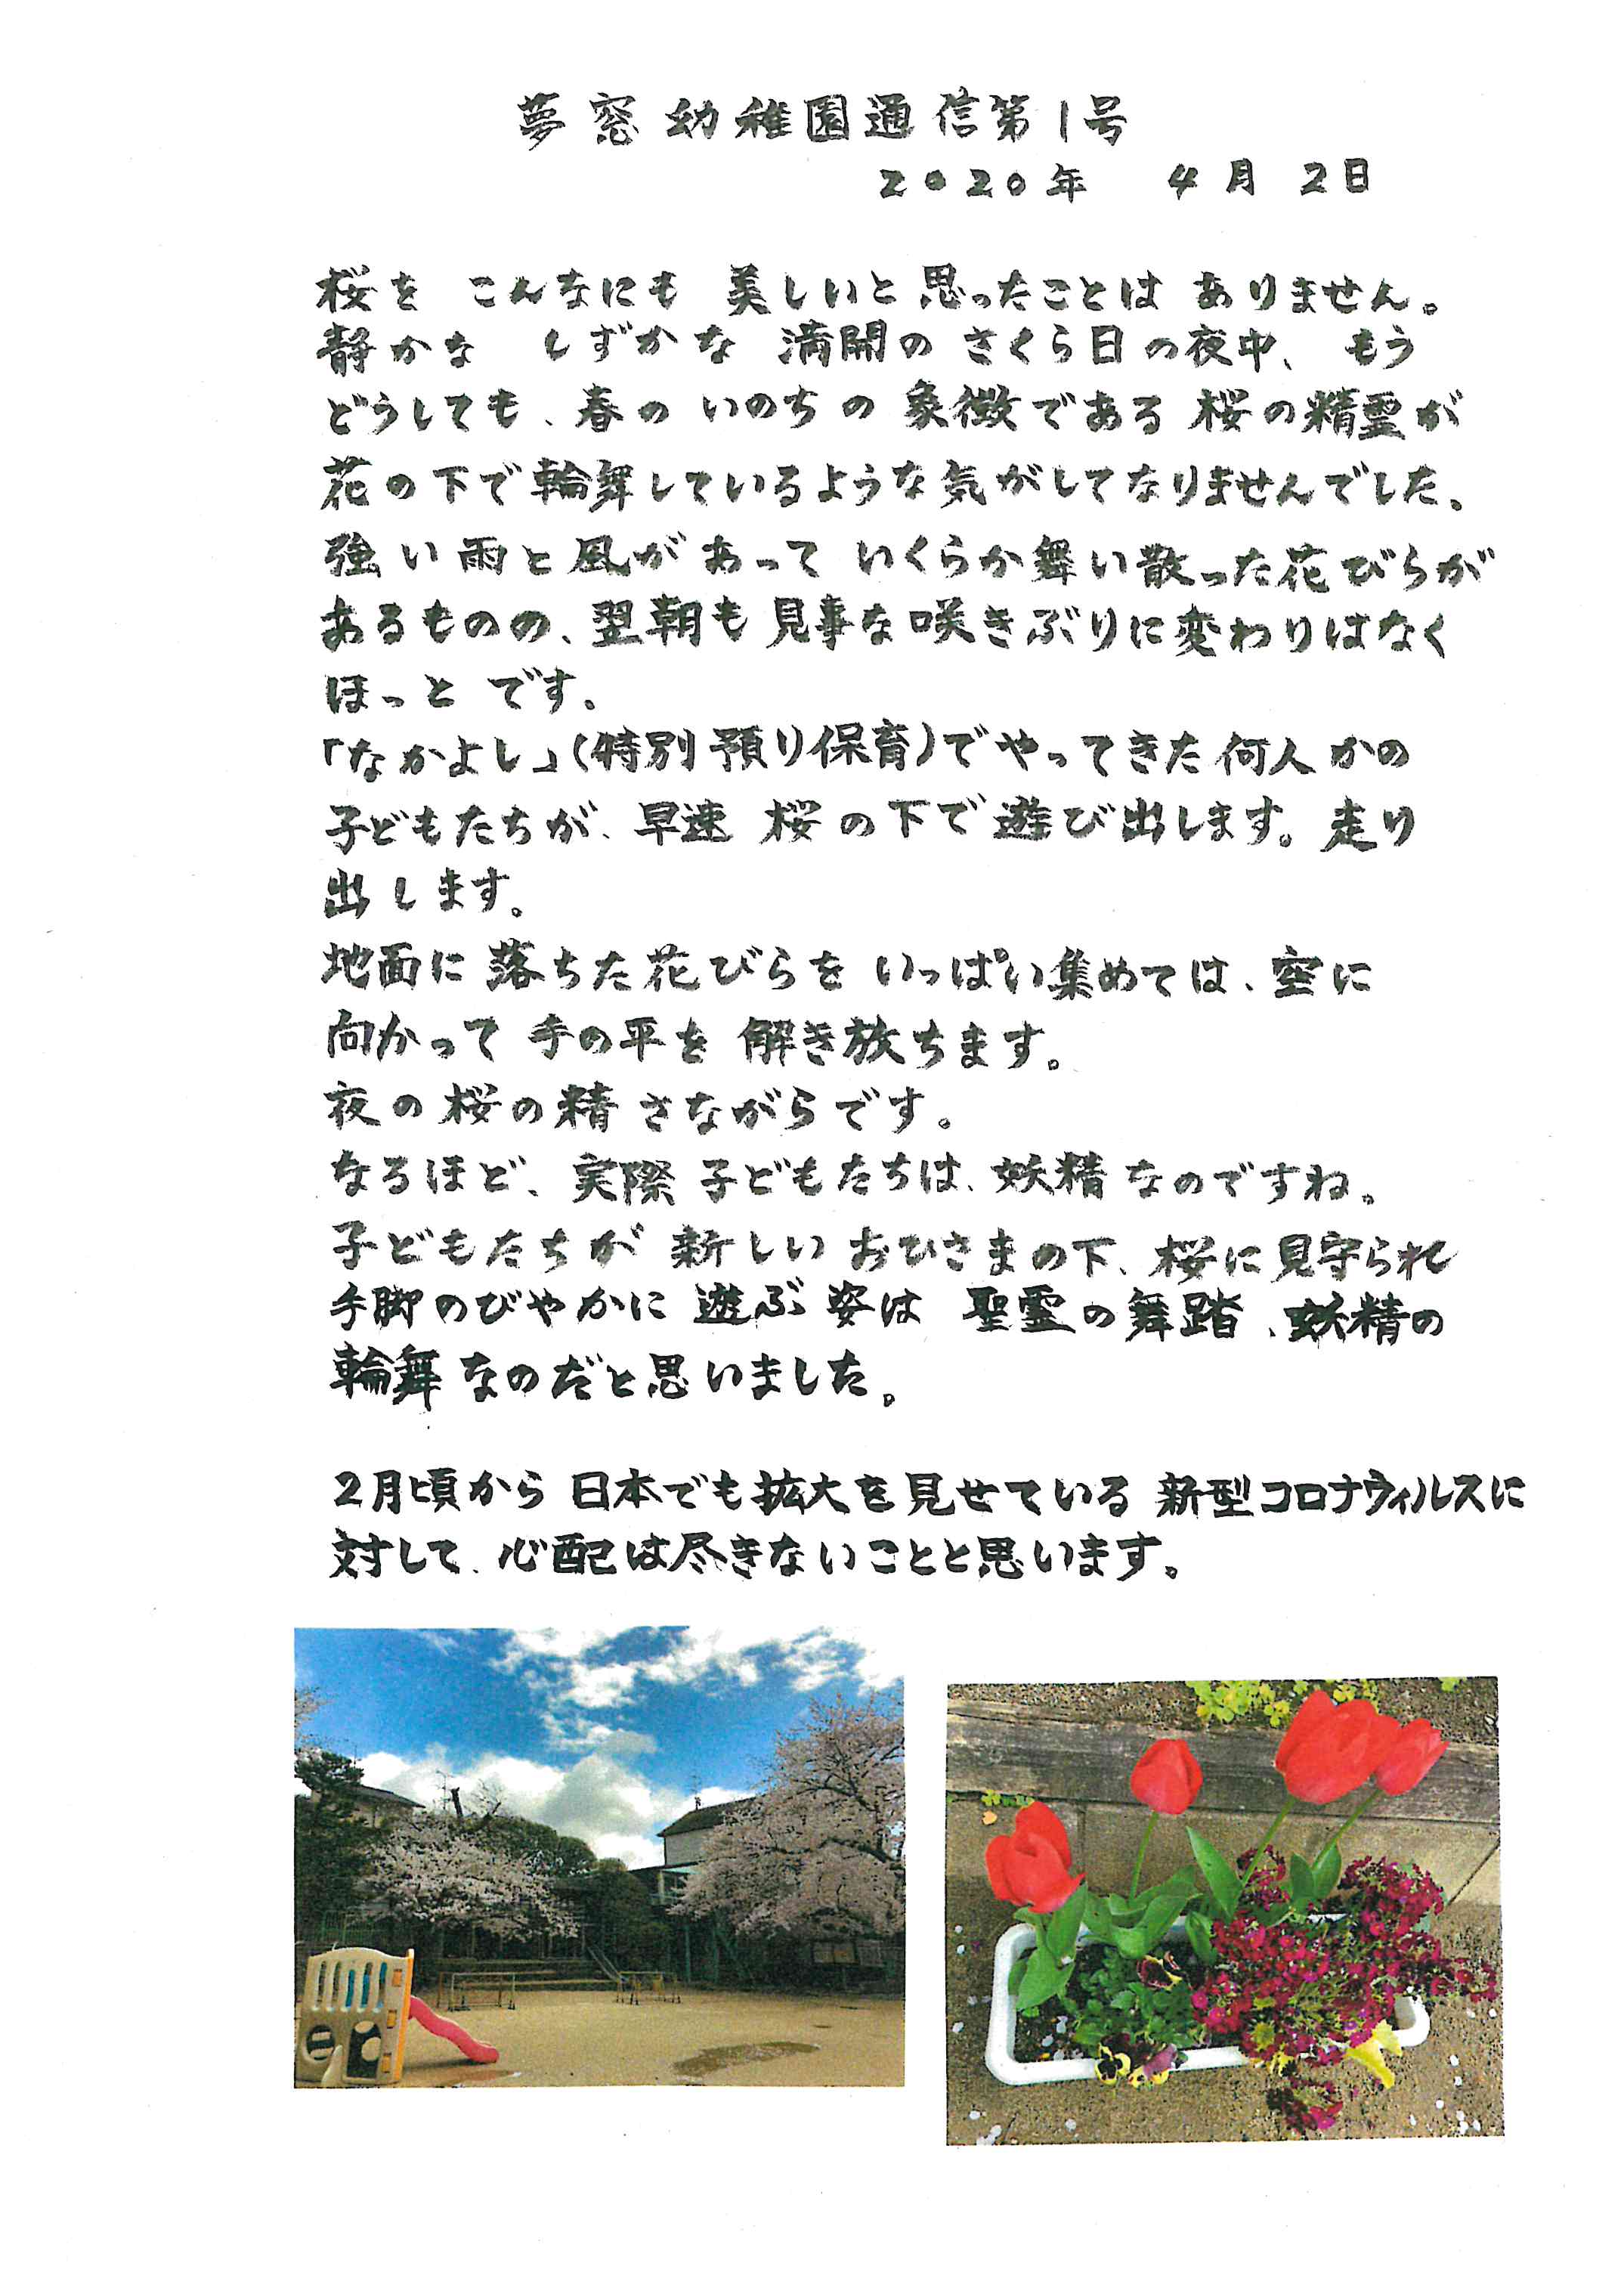 夢窓幼稚園通信第1号
2020年 4月 2日
桜を こんなにも 美しいと思ったことは ありません。
静かな しずかな 満開の さくら日の夜中、もう
どうしても、春の いのちの 象徴である 桜の精霊が
花の下で輪舞しているような気がしてなりませんでした。
強い雨と風が あって いくらか舞い散った花びらが
あるものの、翌朝も見事な咲きぶりに変わりはなく
ほっと です。
「なかよし」(特別預り保育)でやってきた何人かの
子どもたちが、早速 桜の下で遊び出します。走り
出します。
地面に落ちた花びらを いっぱい集めては、空に
向かって 手の平を 解き放ちます。
夜の桜の精 さながらです。
なるほど、実際 子どもたちは、妖精なのですね。
子どもたちが 新しい おひさまの下、桜に見守られ
手脚のびやかに 遊ぶ姿は 聖霊の舞踏、妖精の
輪舞なのだと思いました。
2月頃から 日本でも拡大を見せている 新型コロナウィルスに
対して、心配は尽きないことと思います。